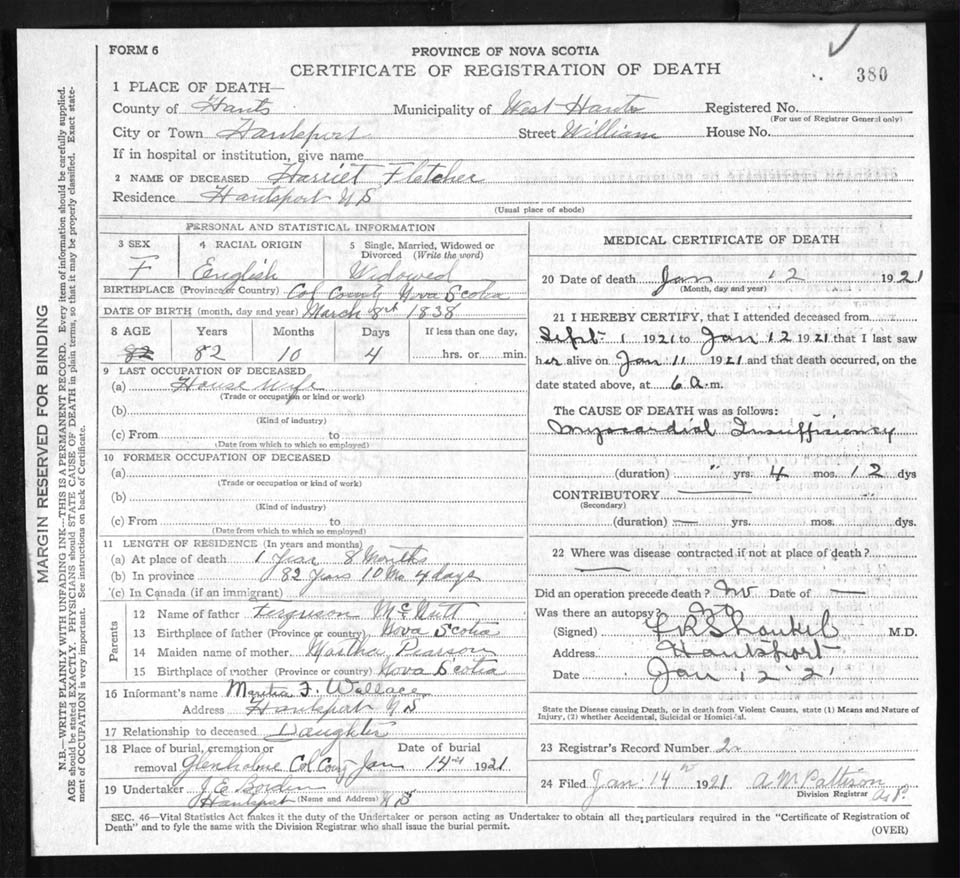 FORM 6
PROVINCE OF NOVA SCOTIA
CERTIFICATE OF REGISTRATION OF DEATH
380
1 PLACE OF DEATH—
County of Hants Municipality of West Hants Registered No.
(For use of Registrar General only)
City or Town Hantsport Street William House No.
If in hospital or institution, give name
2 NAME OF DECEASED Harriet Fletcher
Residence Hantsport N S
(Usual place of abode)
PERSONAL AND STATISTICAL INFORMATION
3 SEX 4 RACIAL ORIGIN 5 Single, Married, Widowed or Divorced (Write the word)
F English Widowed
BIRTHPLACE (Province or Country) Col County Nova Scotia
DATE OF BIRTH (month, day and year) March 8 1838
8 AGE Years Months Days If less than one day,
82 82 10 4 hrs. or min.
9 LAST OCCUPATION OF DECEASED
(a) House Wife
(Trade or occupation or kind or work)
(b)
(Kind of industry)
(c) From to
(Date from which to which so employed)
10 FORMER OCCUPATION OF DECEASED
(a)
(Trade or occupation or kind or work)
(b)
(Kind of industry)
(c) From to
(Date from which to which so employed)
11 LENGTH OF RESIDENCE (In years and months)
(a) At place of death 1 Year 8 Months
(b) In province 82 Years 10 Mo 4 days
(c) In Canada (if an immigrant)
Parents
12 Name of father Ferguson McNutt
13 Birthplace of father (Province or country) Nova Scotia
14 Maiden name of mother Martha Pearson
15 Birthplace of mother (Province or country) Nova Scotia
16 Informant's name Martha F. Wallace
Address Hantsport N S
17 Relationship to deceased Daughter
18 Place of burial, cremation or removal Glenholme Col County Date of burial Jan 14th 1921
19 Undertaker J. E. Borden
Hantsport (Name and Address) N S
MEDICAL CERTIFICATE OF DEATH
20 Date of death Jan 12 1921
(Month, day and year)
21 I HEREBY CERTIFY, that I attended deceased from
Sept 1 1921 to Jan 12 1921 that I last saw
her alive on Jan 11 1921 and that death occurred, on the
date stated above, at 6 a.m.
The CAUSE OF DEATH was as follows:
Myocardial Insufficiency
(duration) " yrs. 4 mos. 12 dys
CONTRIBUTORY
(Secondary)
(duration) — yrs. mos. dys.
22 Where was disease contracted if not at place of death?
Did an operation precede death? No Date of —
Was there an autopsy? No
(Signed) M.D.
Address Hantsport
Date Jan 12 21
State the Disease causing Death, or in death from Violent Causes, state (1) Means and Nature of
Injury, (2) whether Accidental, Suicidal or Homicidal.
23 Registrar's Record Number 2
24 Filed Jan 14 1921 A M Pattison
Division Registrar
SEC. 46—Vital Statistics Act makes it the duty of the Undertaker or person acting as Undertaker to obtain all the particulars required in the "Certificate of Registration of
Death" and to fyle the same with the Division Registrar who shall issue the burial permit.
(OVER)
MARGIN RESERVED FOR BINDING
N.B.—WRITE PLAINLY WITH UNFADING INK—THIS IS A PERMANENT RECORD. Every item of information should be carefully supplied.
AGE should be stated EXACTLY. PHYSICIANS should STATE CAUSE OF DEATH in plain terms, so that it may be properly classified. Exact state-
ment of OCCUPATION is very important. See instructions on back of Certificate.